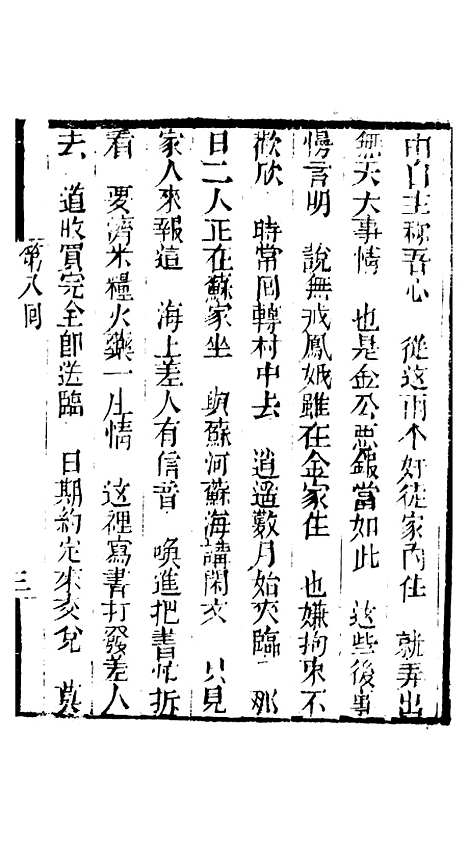 由自主称吾心　從这两个奸徒家內住　就弄出
無天大事情　也是金公惡鍜當如此　这些後事
慢言明　說無戒鳳娥雖在金家住　也嫌拘束不
歡欣　時常回轉村中去　逍遥數月始來臨　那
日二人正在蘇家坐　與蘇河蘇海講閑文　只見
家人來報道　海上差人有信音　喚進把書忙折
看　要濟米糧火藥一庄情　这裡寫書打發差人
去　道收買完全即送臨　日期約定來交兌　莫
第八回
三